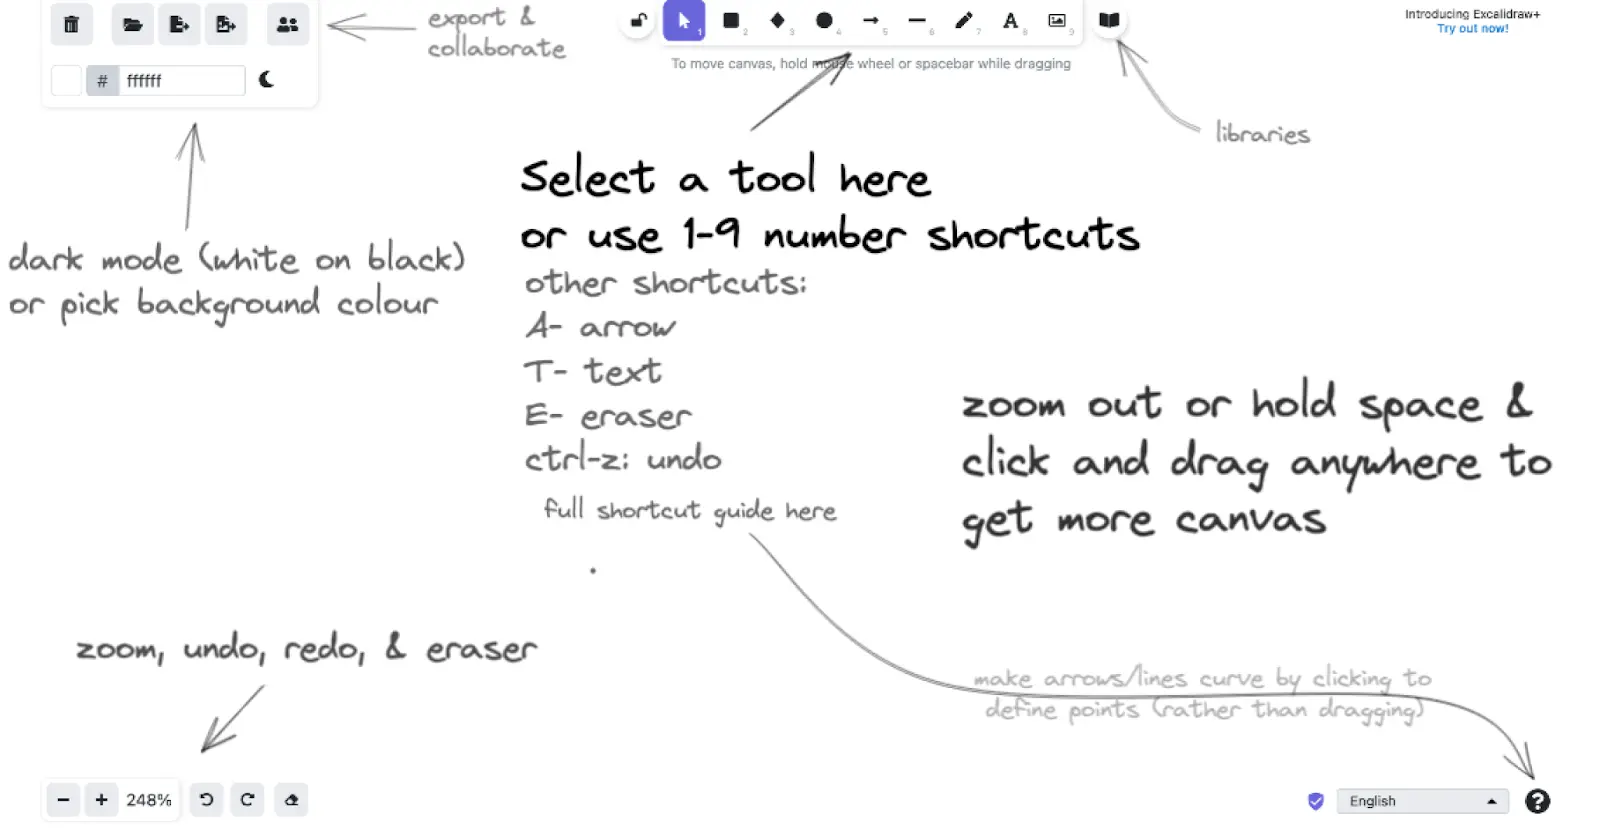 export &
collaborate
# ffffff
1
2
3
4
5
6
7
A 8
9
To move canvas, hold mouse wheel or spacebar while dragging
Introducing Excalidraw+
Try out now!
libraries
Select a tool here
or use 1-9 number shortcuts
other shortcuts:
A- arrow
T- text
E- eraser
ctrl-z: undo
full shortcut guide here
dark mode (white on black)
or pick background colour
zoom out or hold space &
click and drag anywhere to
get more canvas
zoom, undo, redo, & eraser
make arrows/lines curve by clicking to
define points (rather than dragging)
- + 248%
English
?